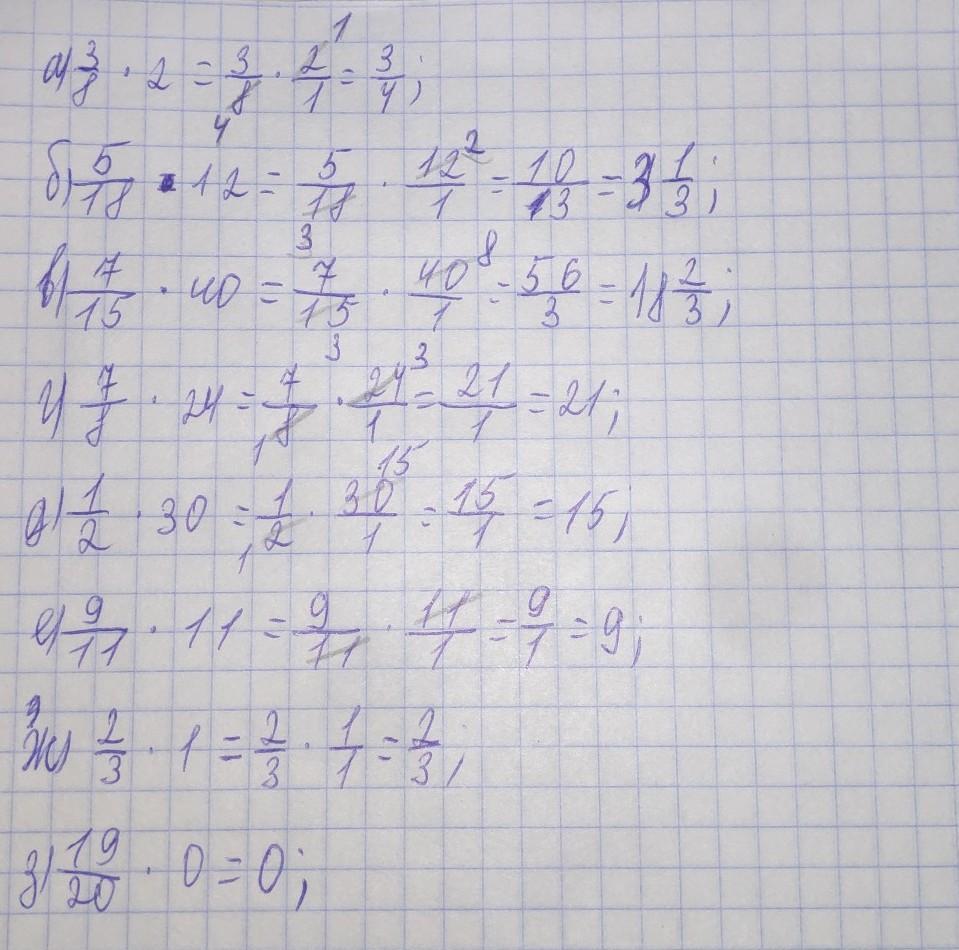 а) 3/8 · 2 = 3/8 4 · 2/1 1 = 3/4;
б) 5/18 · 12 = 5/18 3 · 12/1 2 = 10/3 = 3 1/3;
в) 7/15 · 40 = 7/15 3 · 40/1 8 = 56/3 = 18 2/3;
г) 7/8 · 24 = 7/8 1 · 24/1 3 = 21/1 = 21;
д) 1/2 · 30 = 1/2 1 · 30/1 15 = 15/1 = 15;
е) 9/11 · 11 = 9/11 · 11/1 = 9/1 = 9;
ж) 2/3 · 1 = 2/3 · 1/1 = 2/3;
з) 19/20 · 0 = 0;